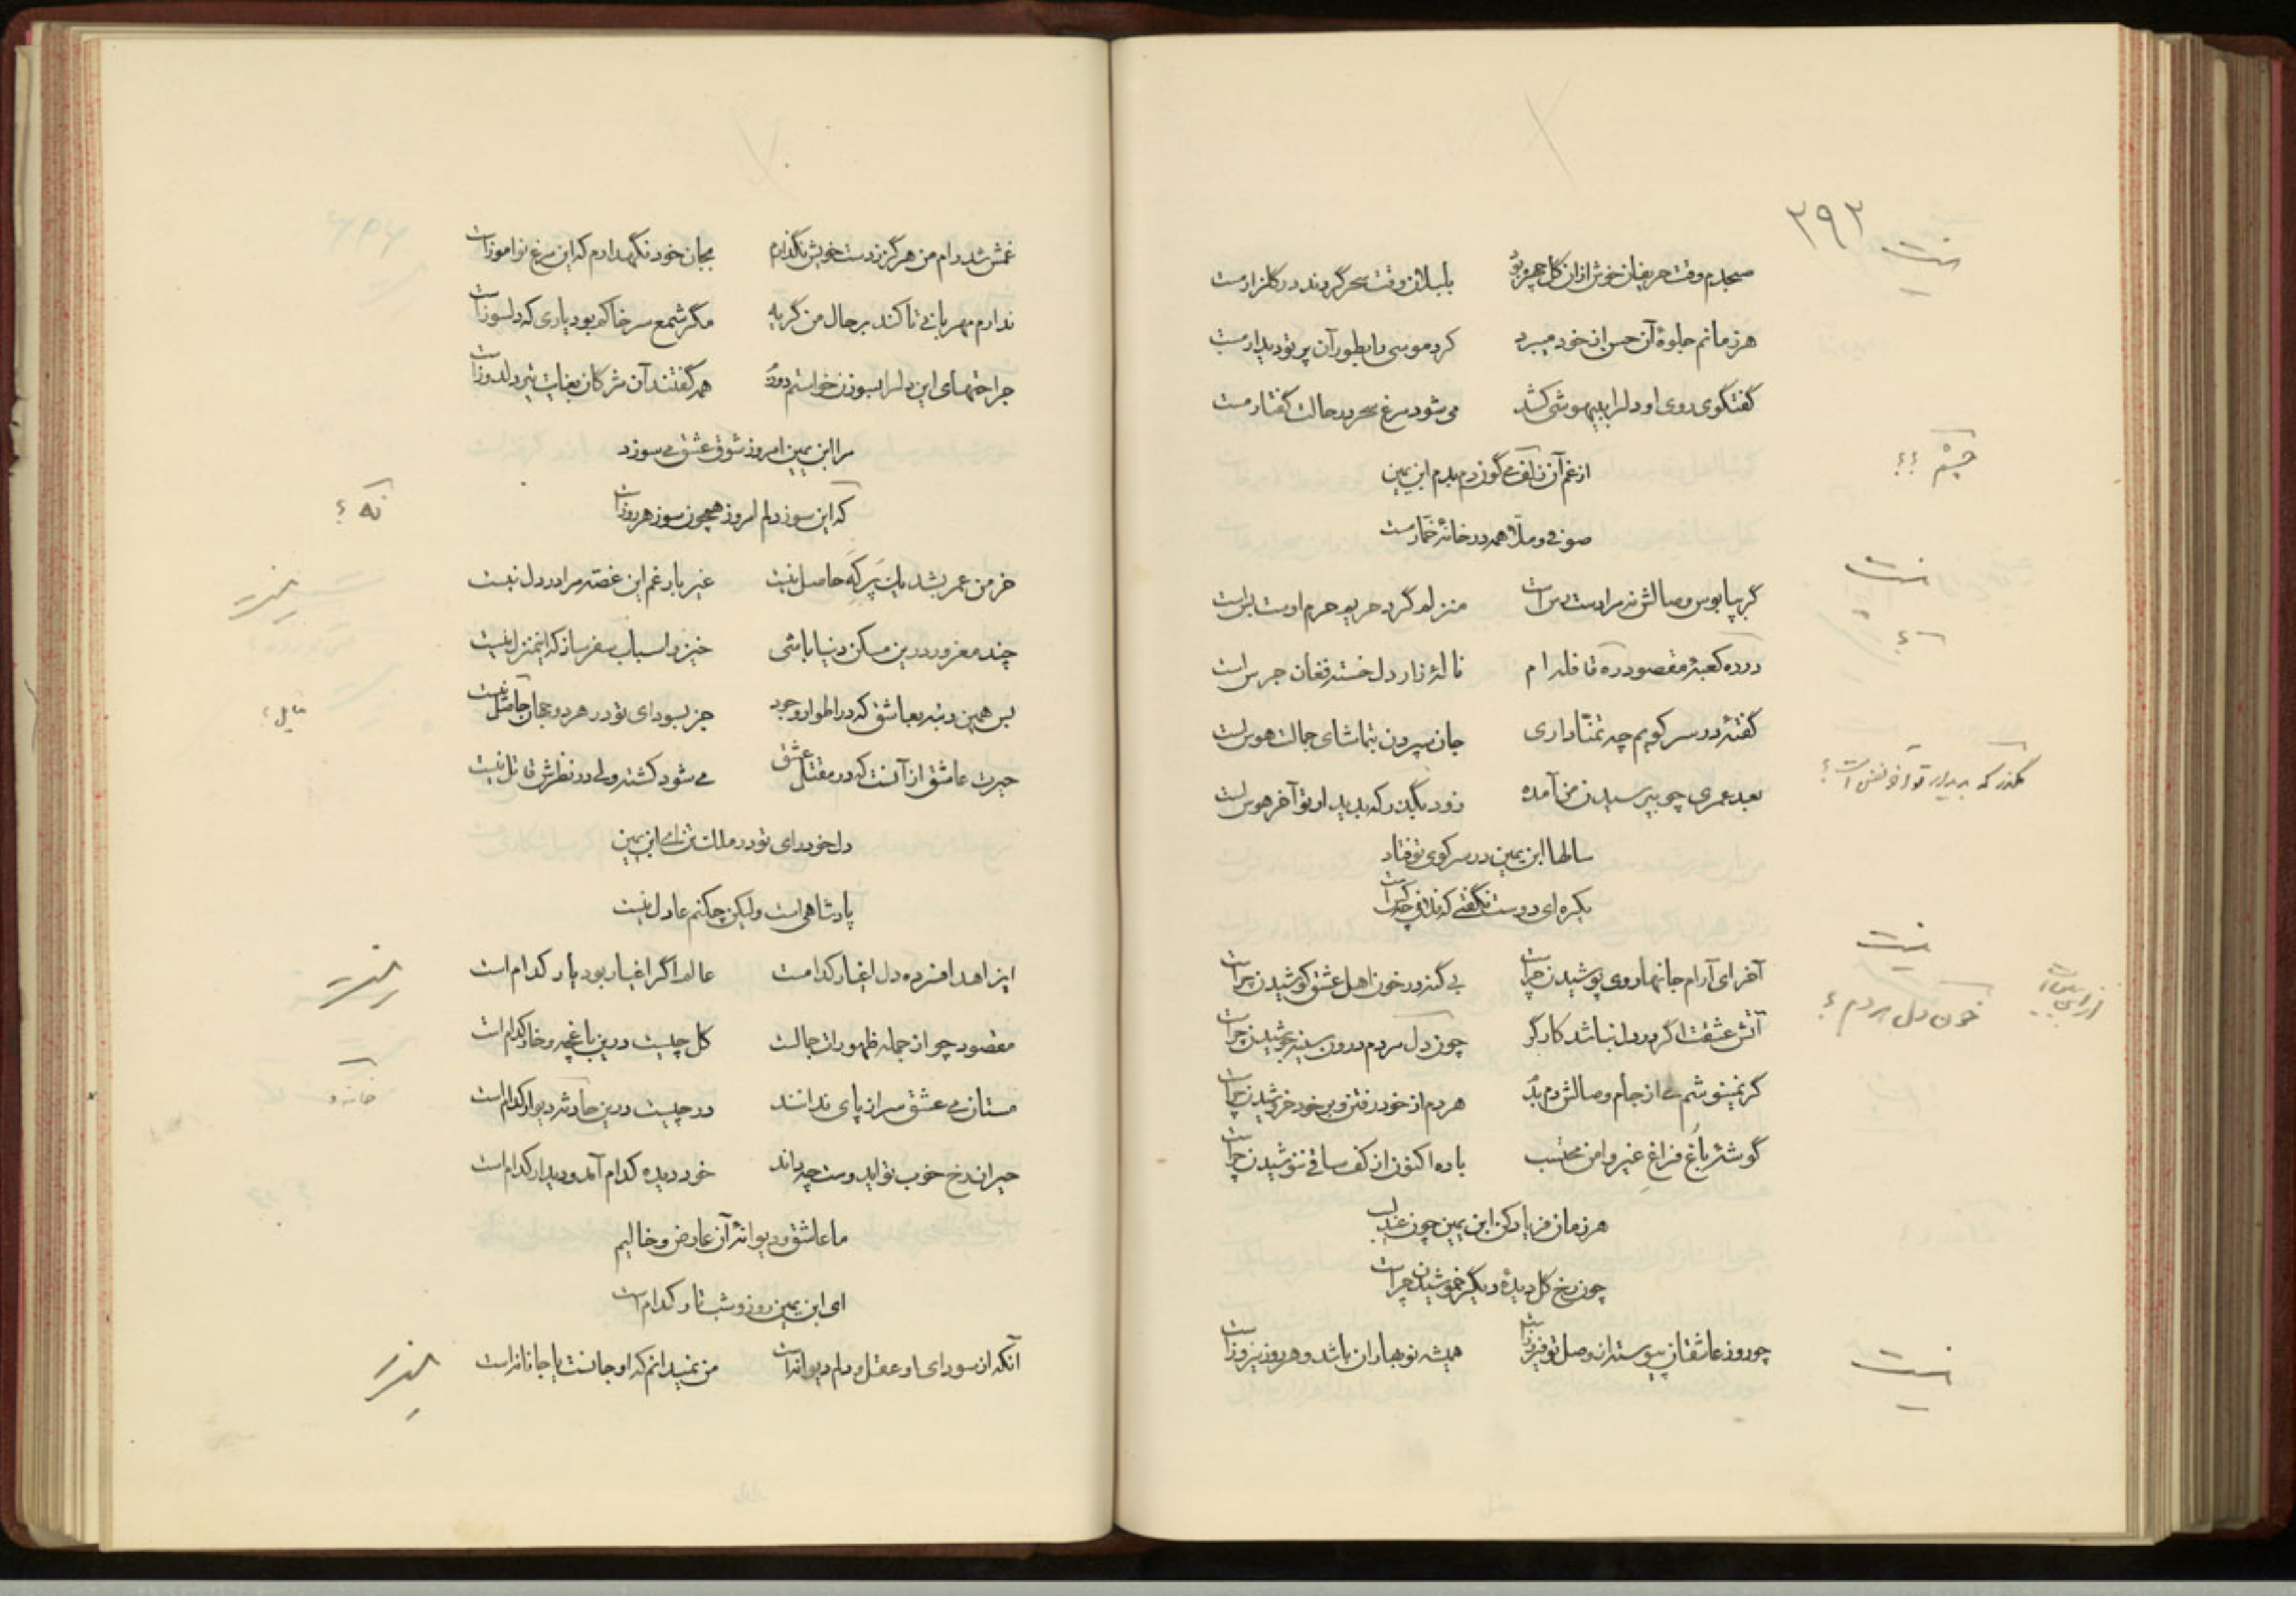 ۲۹۲
نیست
صبحدم وقت حریفان خوش ازان گل چهره بود بلبلان وقت سحر گردند در گلزار مست
هر زمانم جلوهٔ آن حسن از خود میبرد کرد موسی را بطور آن پرتو دیدار مست
گفتگوی روی او دلرا به بیهوشی کشد می شود مرغ سحر در حالت گفتار مست
چشم ؟؟
از غم آن می گون دم بدم ابن یمین
صوفی و ملا همه در خانهٔ خمار مست
نیست
گر بپابوس وصالش نه مرا دست رس است منزلم گرد حریم حرم اوست بس است
در ره کعبهٔ مقصود ره قافله ام نالهٔ زار دل خسته فغان جرس است
گفتهٔ در سر کویم چه تمنا داری جان سپردن بتماشای جمالت هوس است
بگذر که بدیدار تو آخر نفس است ؟
بعد عمری چو بپرسیدن من آمده زود بگذر که بدیدار تو آخر هوس است
سالها ابن یمین در سر کوی تو فتاد
یکره ای دوست نگفتی که فلانی چه کس است
نیست
آخر ای آرام جانها روی پوشیدن چراست بی گنه در خون اهل عشق کوشیدن چراست
خون دل مردم ؟
آتش عشقت اگر در دل نباشد کارگر چون دل مردم درون سینه جوشیدن چراست
گر نمینوشم می از جام وصالش دم بدم هر دم از خود رفتن و بر خود خروشیدن چراست
گوشهٔ باغ فراغ غیر و امن محتسب باده اکنون از کف ساقی ننوشیدن چراست
هر زمان فریاد کن ابن یمین چون عندلیب
چون رخ گل دیدهٔ دیگر خموشیدن چراست
نیست
چو روز عاشقان پیوسته از وصل تو فیروز است همیشه نوبهاران باشد و هر روز نوروز است
غمش شد رام من هرگز ز دست خویش نگذارم بجان خود نگهدارم که این مرغ نوآموز است
ندارم مهربانی تا کند بر حال من گریه مگر شمع سر خاکم بود یاری که دلسوز است
جراحتهای این دلرا بسوزن خواستم دوزد همه گفتند آن مژگان بغایت تیر دلدوز است
مرا ابن یمین امروز شوق عشق می سوزد
نه ؟
که این سوز دلم امروز همچون سوز هر روز است
خرمن عمر بشد یک پر که حاصل نیست غیر بار غم این غصه مرا در دل نیست
چند مغرور درین مسکن دنیا باشی خیز و اسباب سفر ساز که این منزل نیست
بس همین رتبه بعاشق که در اطوار وجود جز بسودای تو در هر دو جهان نیست
حیرت عاشق از آنست که در مقتل عشق می شود کشته ولی در نظرش قاتل نیست
دل خودرای تو در ملک تن ای ابن یمین
پادشاهی است ولیکن چکنم عادل نیست
ای زاهد افسرده دل اغیار کدامست عالم اگر اغیار بود یار کدام است
مقصود چو از جمله ظهورات جمالت گل چیست درین باغچه و خار کدام است
مستان می عشق سر از پای ندانند در چیست درین حادثه دیوار کدام است
حیران رخ خوب تو ایدوست چه داند خود دیده کدام آمد و دیدار کدام است
ما عاشق و دیوانهٔ آن عارض و خالیم
ای ابن یمین روز و شب تار کدام است
آنکه از سودای او عقل و دلم دیوانه است من نمیدانم که او جانست یا جانانه است